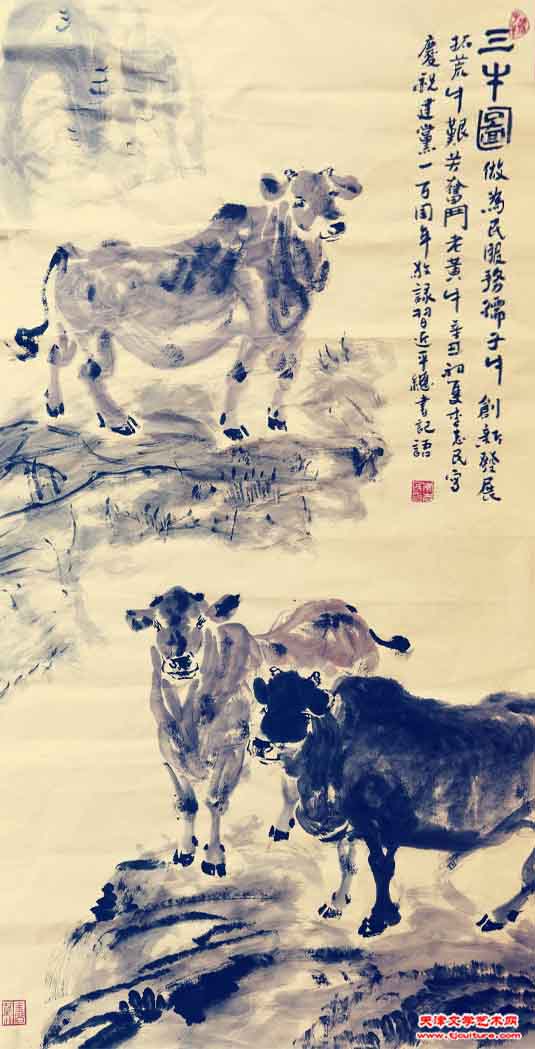 三牛圖
做為民服務孺子牛 創新發展
拓荒牛 艱苦奮鬥 老黃牛 辛丑初夏李志民寫
慶祝建黨一百周年 敬錄習近平總書記語
天津文学艺术网
www.tjculture.com